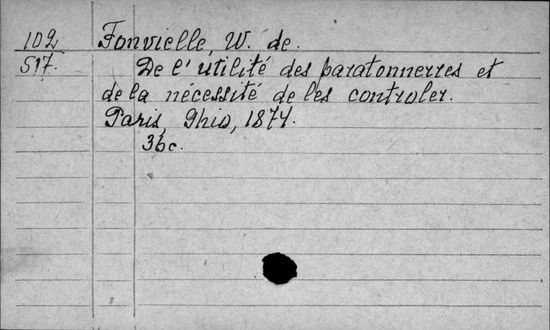 102 Fonvielle, W. de.
517. De l'utilité des paratonnerres et
de la nécessité de les controler.
Paris, Ghio, 1874.
36c.